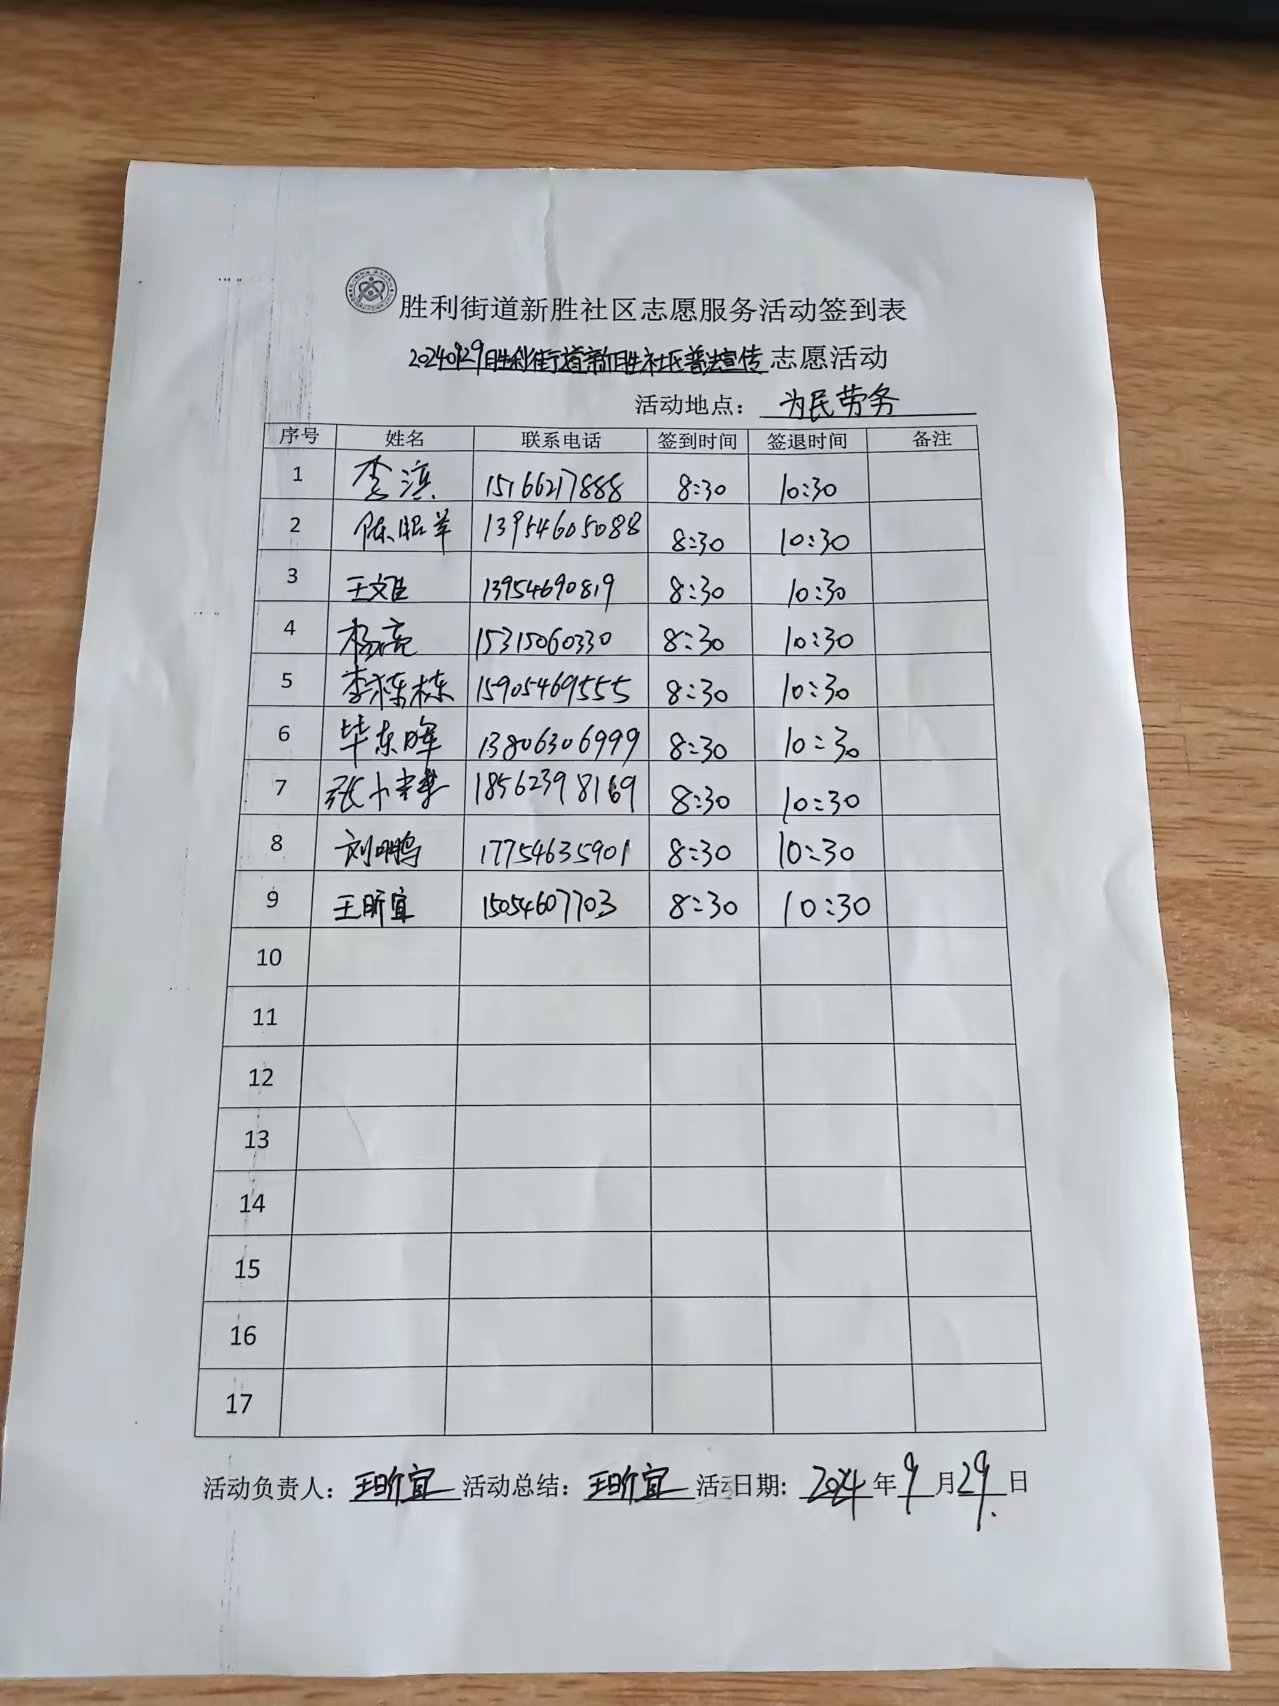 胜利街道新胜社区志愿服务活动签到表
20240929胜利街道新胜社区普法宣传 志愿活动
活动地点： 为民劳务
序号 姓名 联系电话 签到时间 签退时间 备注
1 李淇 15166217888 8:30 10:30
2 陈昭羊 13954605088 8:30 10:30
3 王文臣 13954690819 8:30 10:30
4 杨亮 15315060330 8:30 10:30
5 李栋栋 15905469555 8:30 10:30
6 毕东晖 13806306999 8:30 10:30
7 张小 18562398169 8:30 10:30
8 刘鹏 17754635901 8:30 10:30
9 王昕宜 15054607703 8:30 10:30
10
11
12
13
14
15
16
17
活动负责人： 王昕宜 活动总结： 王昕宜 活动日期: 2024 年 9 月 29 日